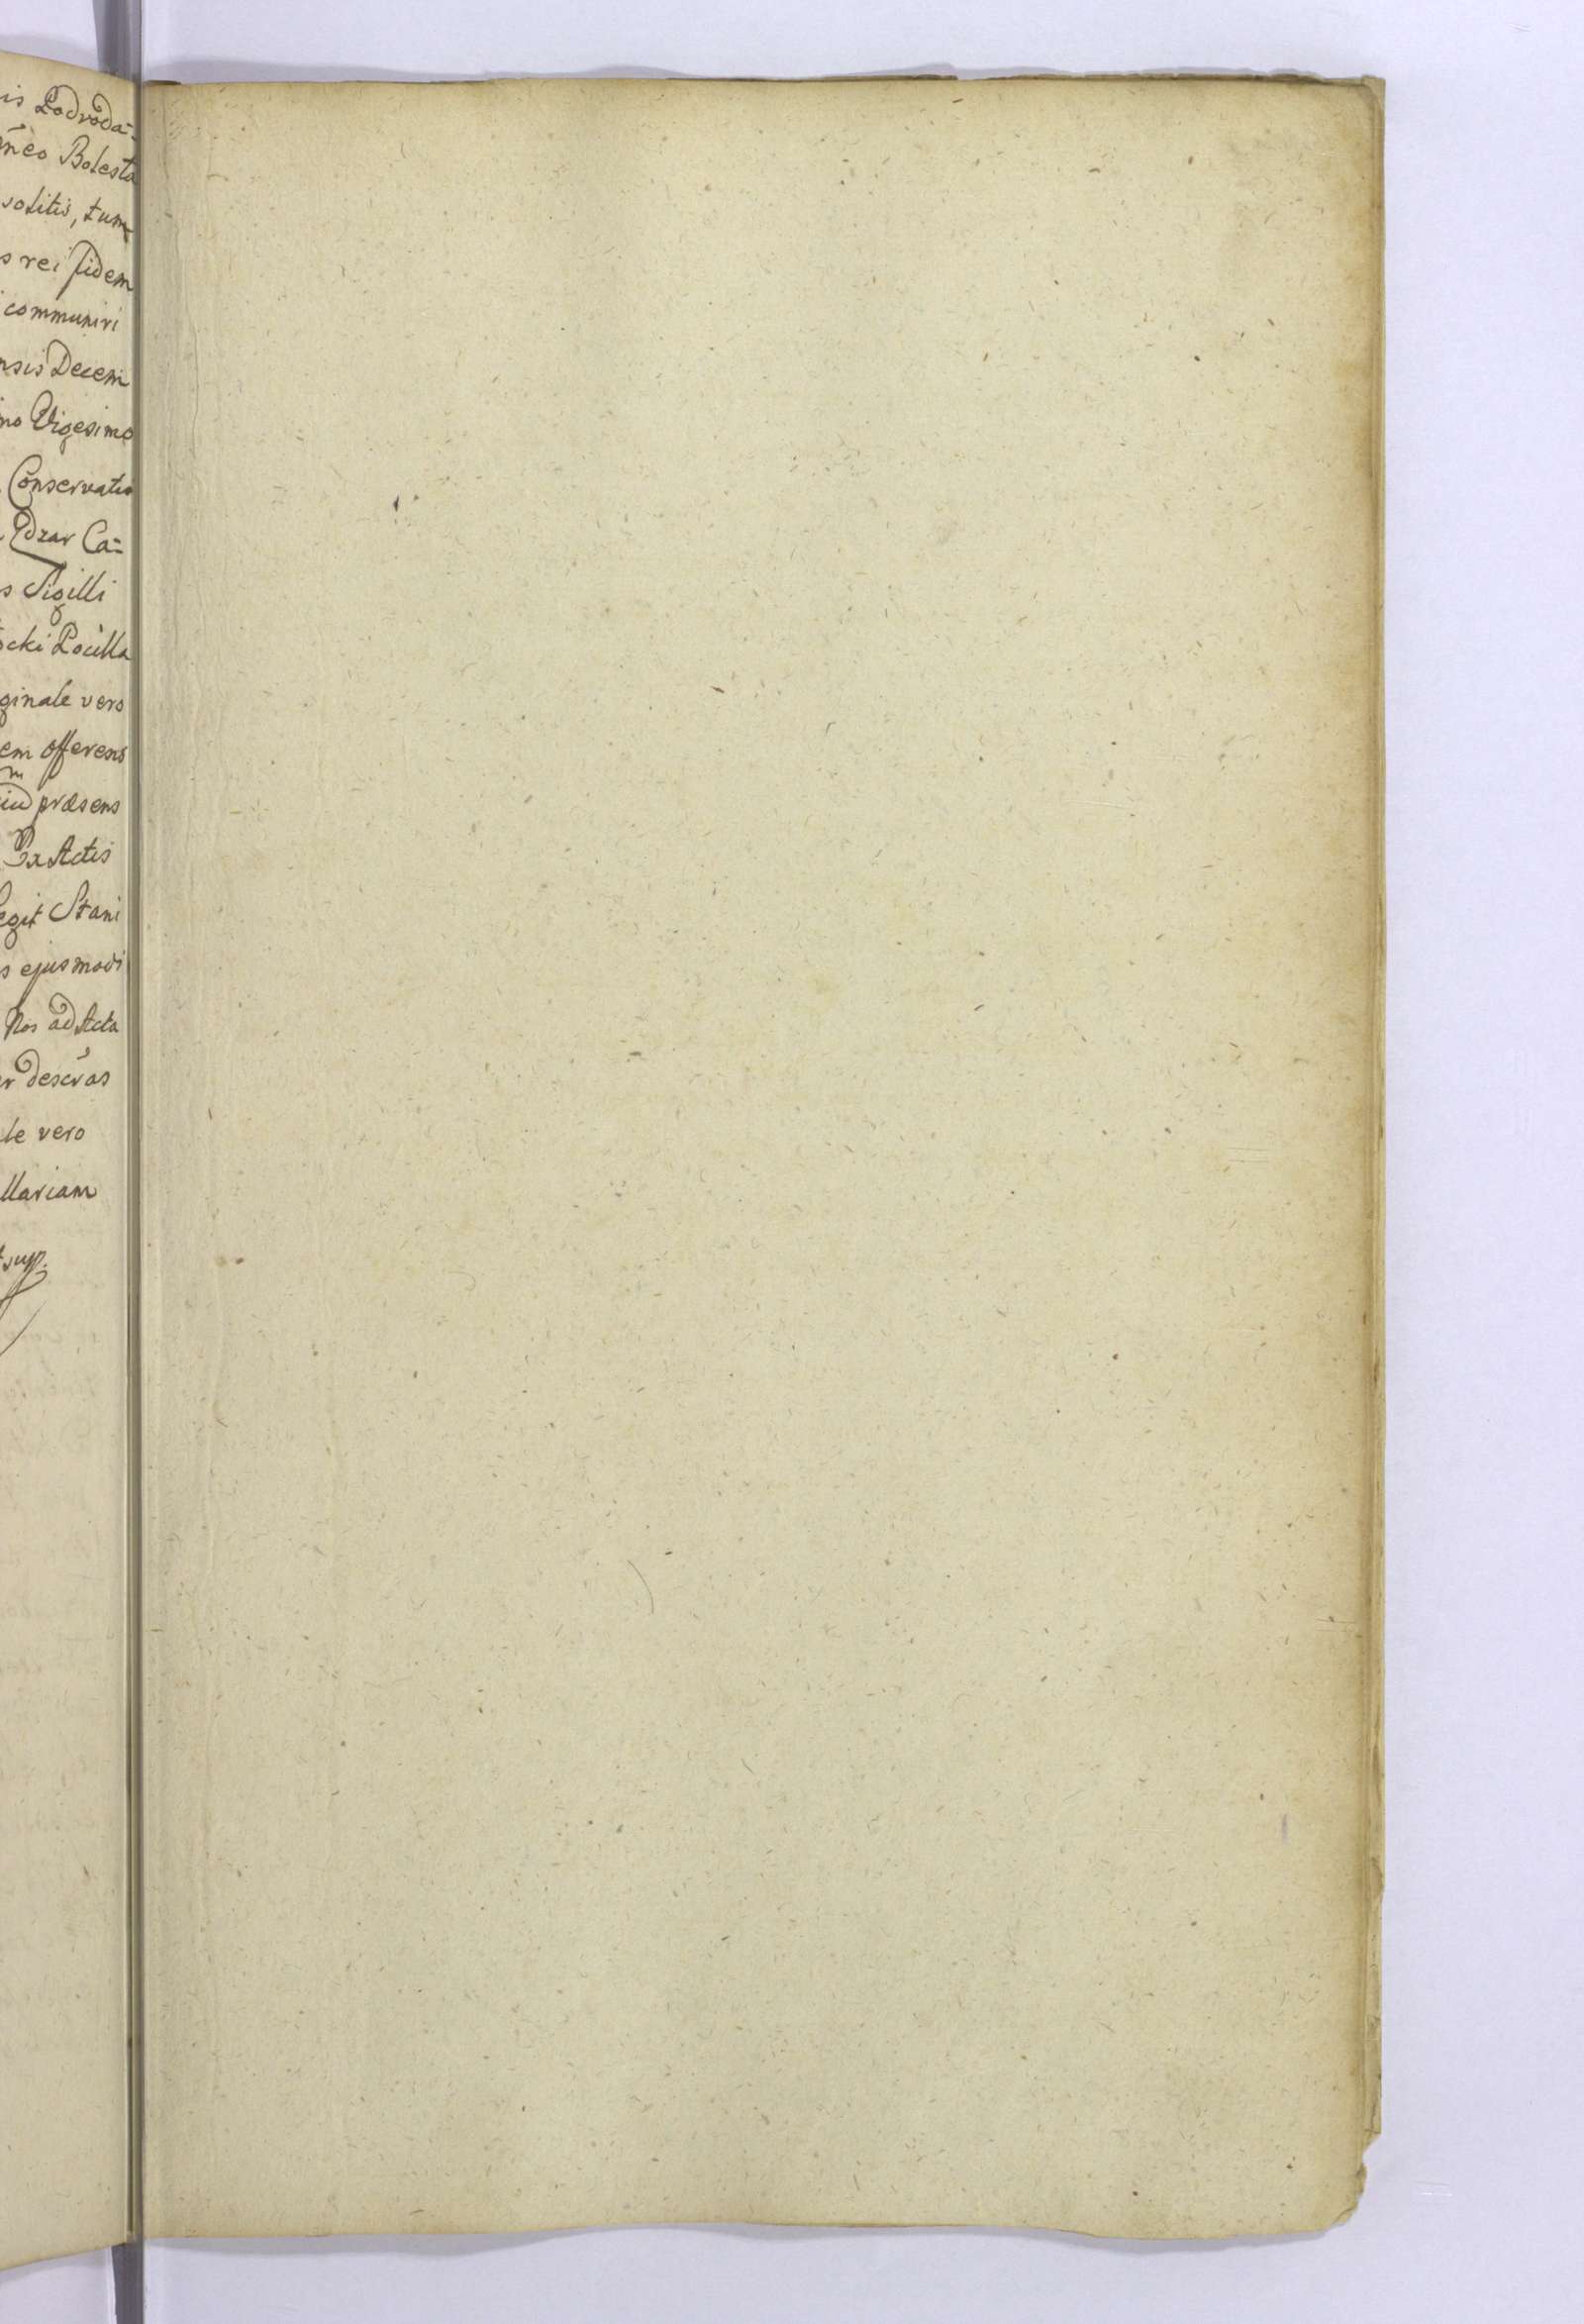 is Podwoda=
neo Bolesta
solitis, tum
s rei fidem
communiri
nsis Decem
no Vigesimo
Conservatio
Ca=
s Sigilli
ocki Pocilla
ginale vero
em offerens
praesens
Ex Actis
egit Stani
s ejusmodi
Nos ad Acta
r descras
le vero
llariam
sup.